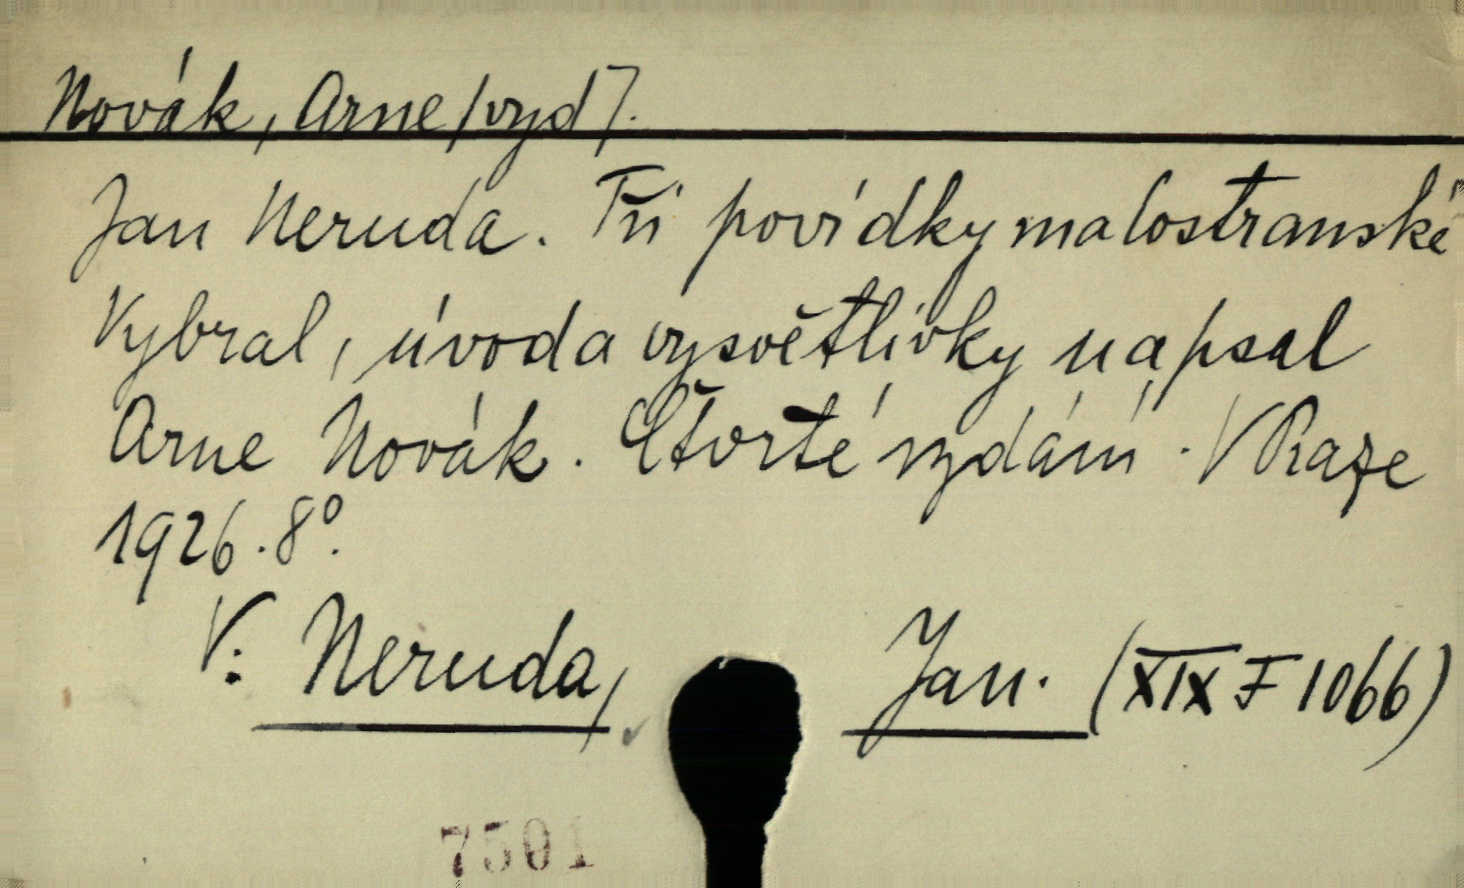 Novák, Arne /vyd/.
Jan Neruda. Tři povídky malostranské
Vybral, úvod a vysvětlivky napsal
Arne Novák. Čtvrté vydání. V Praze
1926. 8°.
V: Neruda, Jan. (XIX F 1066)
7501